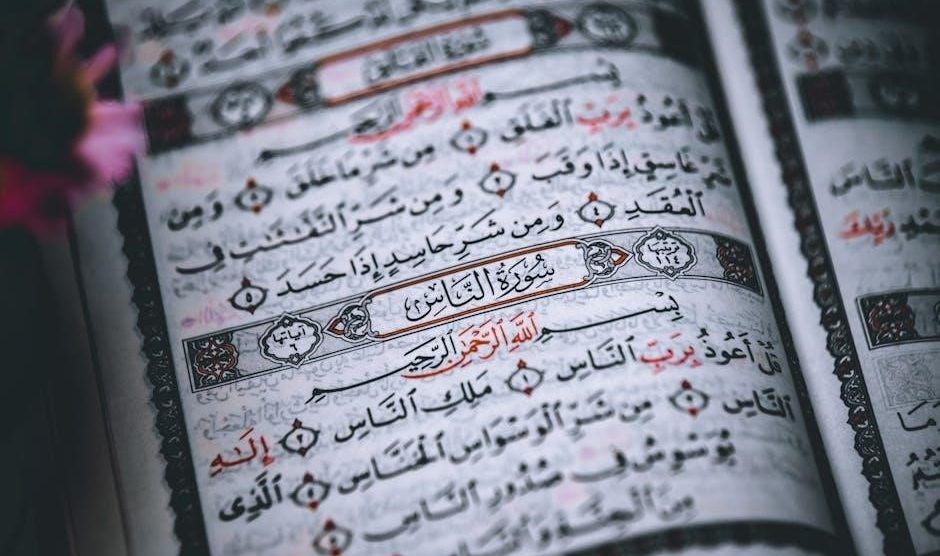 سُورَةُ الفَلَقِ
بِسْمِ ٱللَّهِ ٱلرَّحْمَٰنِ ٱلرَّحِيمِ
قُلْ أَعُوذُ بِرَبِّ ٱلْفَلَقِ ١ مِن شَرِّ مَا خَلَقَ ٢ وَمِن
شَرِّ غَاسِقٍ إِذَا وَقَبَ ٣ وَمِن شَرِّ ٱلنَّفَّٰثَٰتِ فِى
ٱلْعُقَدِ ٤ وَمِن شَرِّ حَاسِدٍ إِذَا حَسَدَ ٥
ترتيبها ١١٤ سُورَةُ النَّاسِ آياتها ٦
بِسْمِ ٱللَّهِ ٱلرَّحْمَٰنِ ٱلرَّحِيمِ
قُلْ أَعُوذُ بِرَبِّ ٱلنَّاسِ ١ مَلِكِ ٱلنَّاسِ ٢ إِلَٰهِ
ٱلنَّاسِ ٣ مِن شَرِّ ٱلْوَسْوَاسِ ٱلْخَنَّاسِ ٤ ٱلَّذِى
يُوَسْوِسُ فِى صُدُورِ ٱلنَّاسِ ٥
مِنَ ٱلْجِنَّةِ وَٱلنَّاسِ